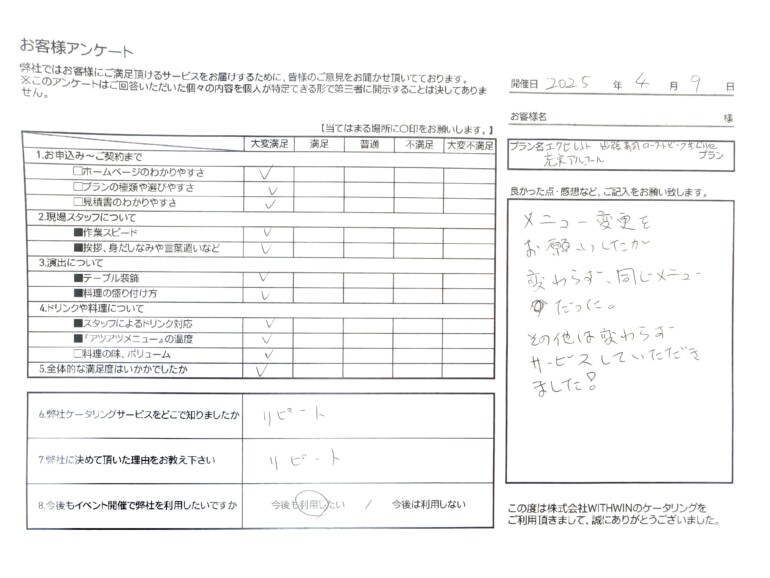 お客様アンケート
弊社ではお客様にご満足頂けるサービスをお届けするために、皆様のご意見をお聞かせ頂いております。
※このアンケートはご回答いただいた個々の内容を個人が特定できる形で第三者に開示することは決してありません。
【当てはまる場所に○印をお願いします。】
大変満足 満足 普通 不満足 大変不満足
1.お申込み～ご契約まで
□ホームページのわかりやすさ ✓
□プランの種類や選びやすさ ✓
□見積書のわかりやすさ ✓
2.現場スタッフについて
■作業スピード ✓
■挨拶、身だしなみや言葉遣いなど ✓
3.演出について
■テーブル装飾 ✓
■料理の盛り付け方 ✓
4.ドリンクや料理について
■スタッフによるドリンク対応 ✓
■『アツアツメニュー』の温度 ✓
□料理の味、ボリューム ✓
5.全体的な満足度はいかがでしたか ✓
6.弊社ケータリングサービスをどこで知りましたか リピート
7.弊社に決めて頂いた理由をお教え下さい リピート
8.今後もイベント開催で弊社を利用したいですか 今後も利用したい / 今後は利用しない
開催日 2025 年 4 月 9 日
お客様名 様
プラン名 エクセレント 出張 ローストビーフ Live
充実アルコール プラン
良かった点・感想など、ご記入をお願い致します。
メニュー変更を
お願いしたが
変わらず、同じメニュー
だった。
その他は変わらず
サービスしていただき
ました!
この度は株式会社WITHWINのケータリングを
ご利用頂きまして、誠にありがとうございました。